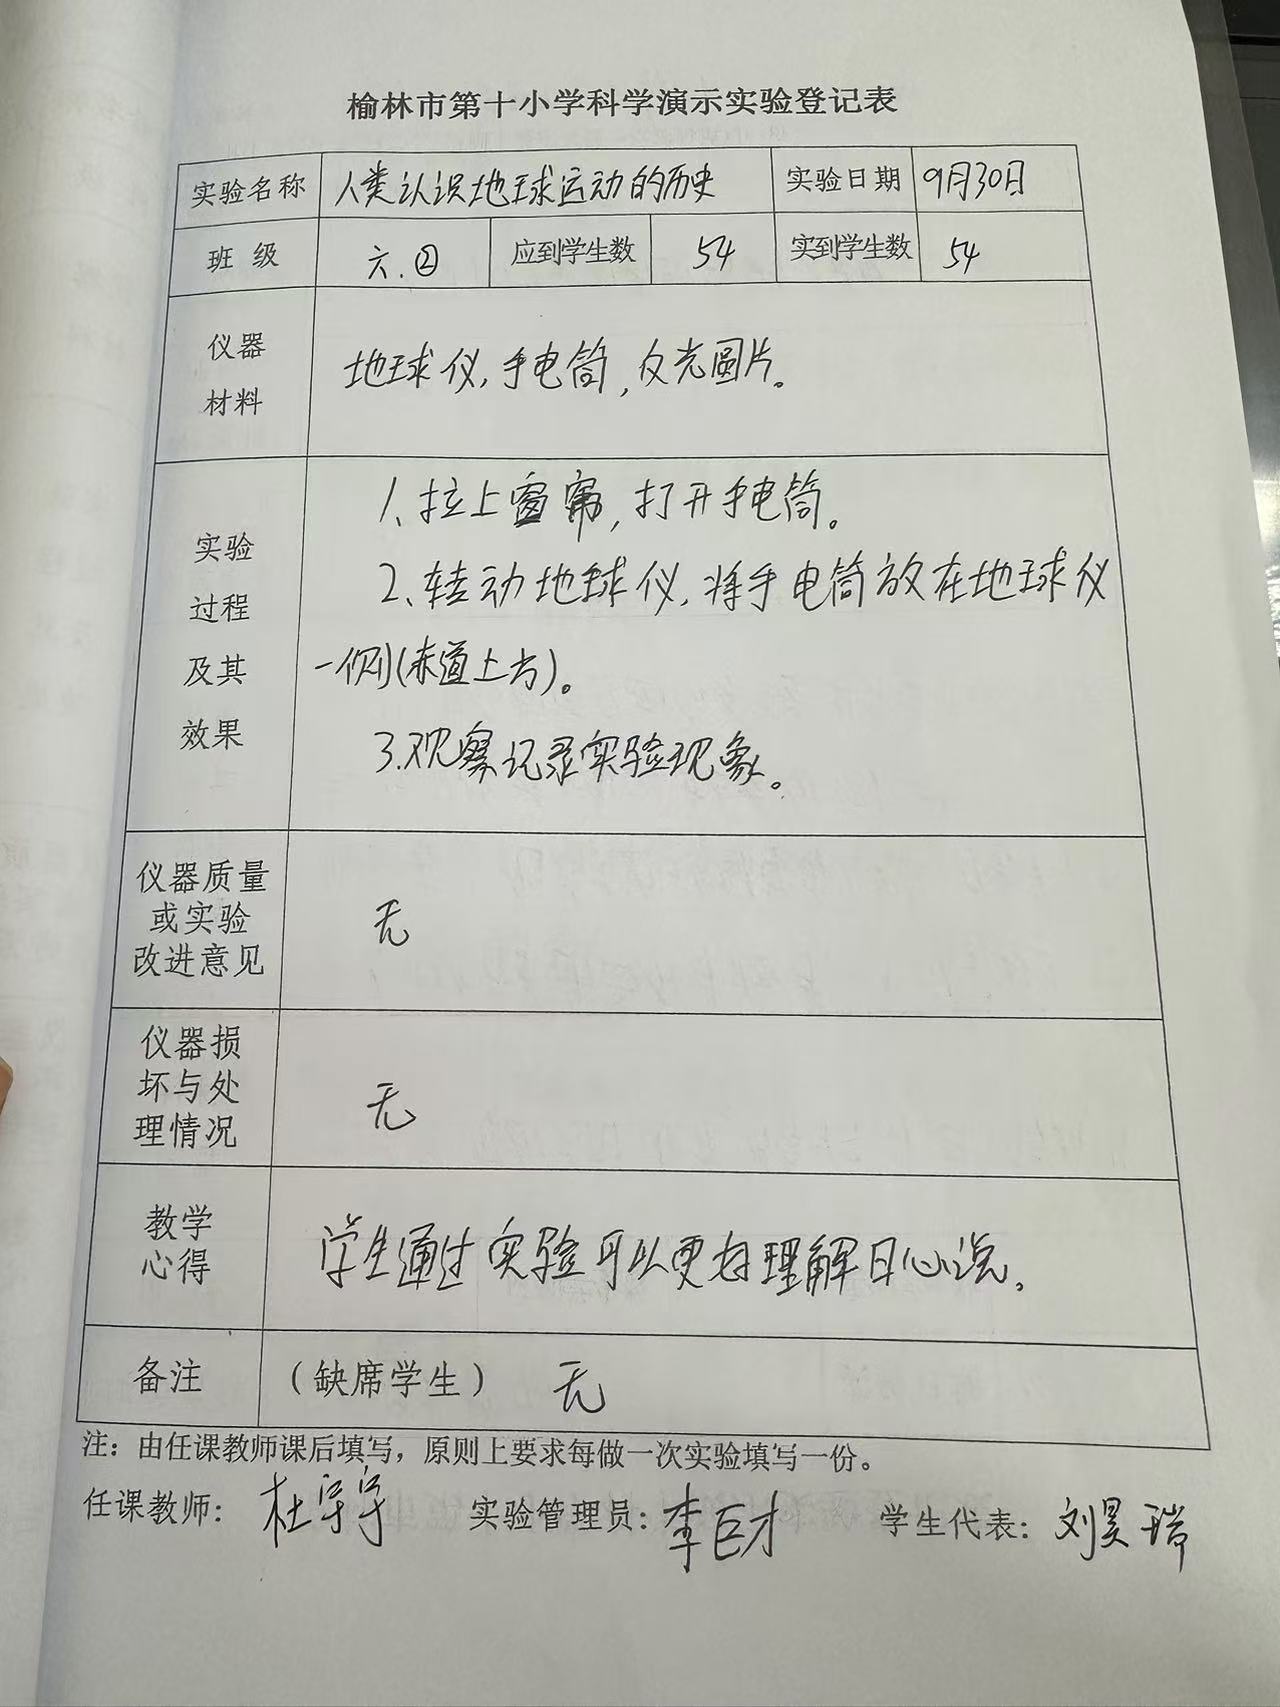 榆林市第十小学科学演示实验登记表
实验名称 人类认识地球运动的历史 实验日期 9月30日
班 级 六.② 应到学生数 54 实到学生数 54
仪器
材料
地球仪,手电筒,仪光圖片。
实验
过程
及其
效果
1、拉上窗帘,打开手电筒。
2、转动地球仪,将手电筒放在地球仪
一侧(赤道上方)。
3.观察记录实验现象。
仪器质量
或实验
改进意见
无
仪器损
坏与处
理情况
无
教学
心得
学生通过实验可以更好理解日心说。
备注 (缺席学生) 无
注：由任课教师课后填写，原则上要求每做一次实验填写一份。
任课教师：杜宇宇 实验管理员：李巨才 学生代表：刘昊瑞